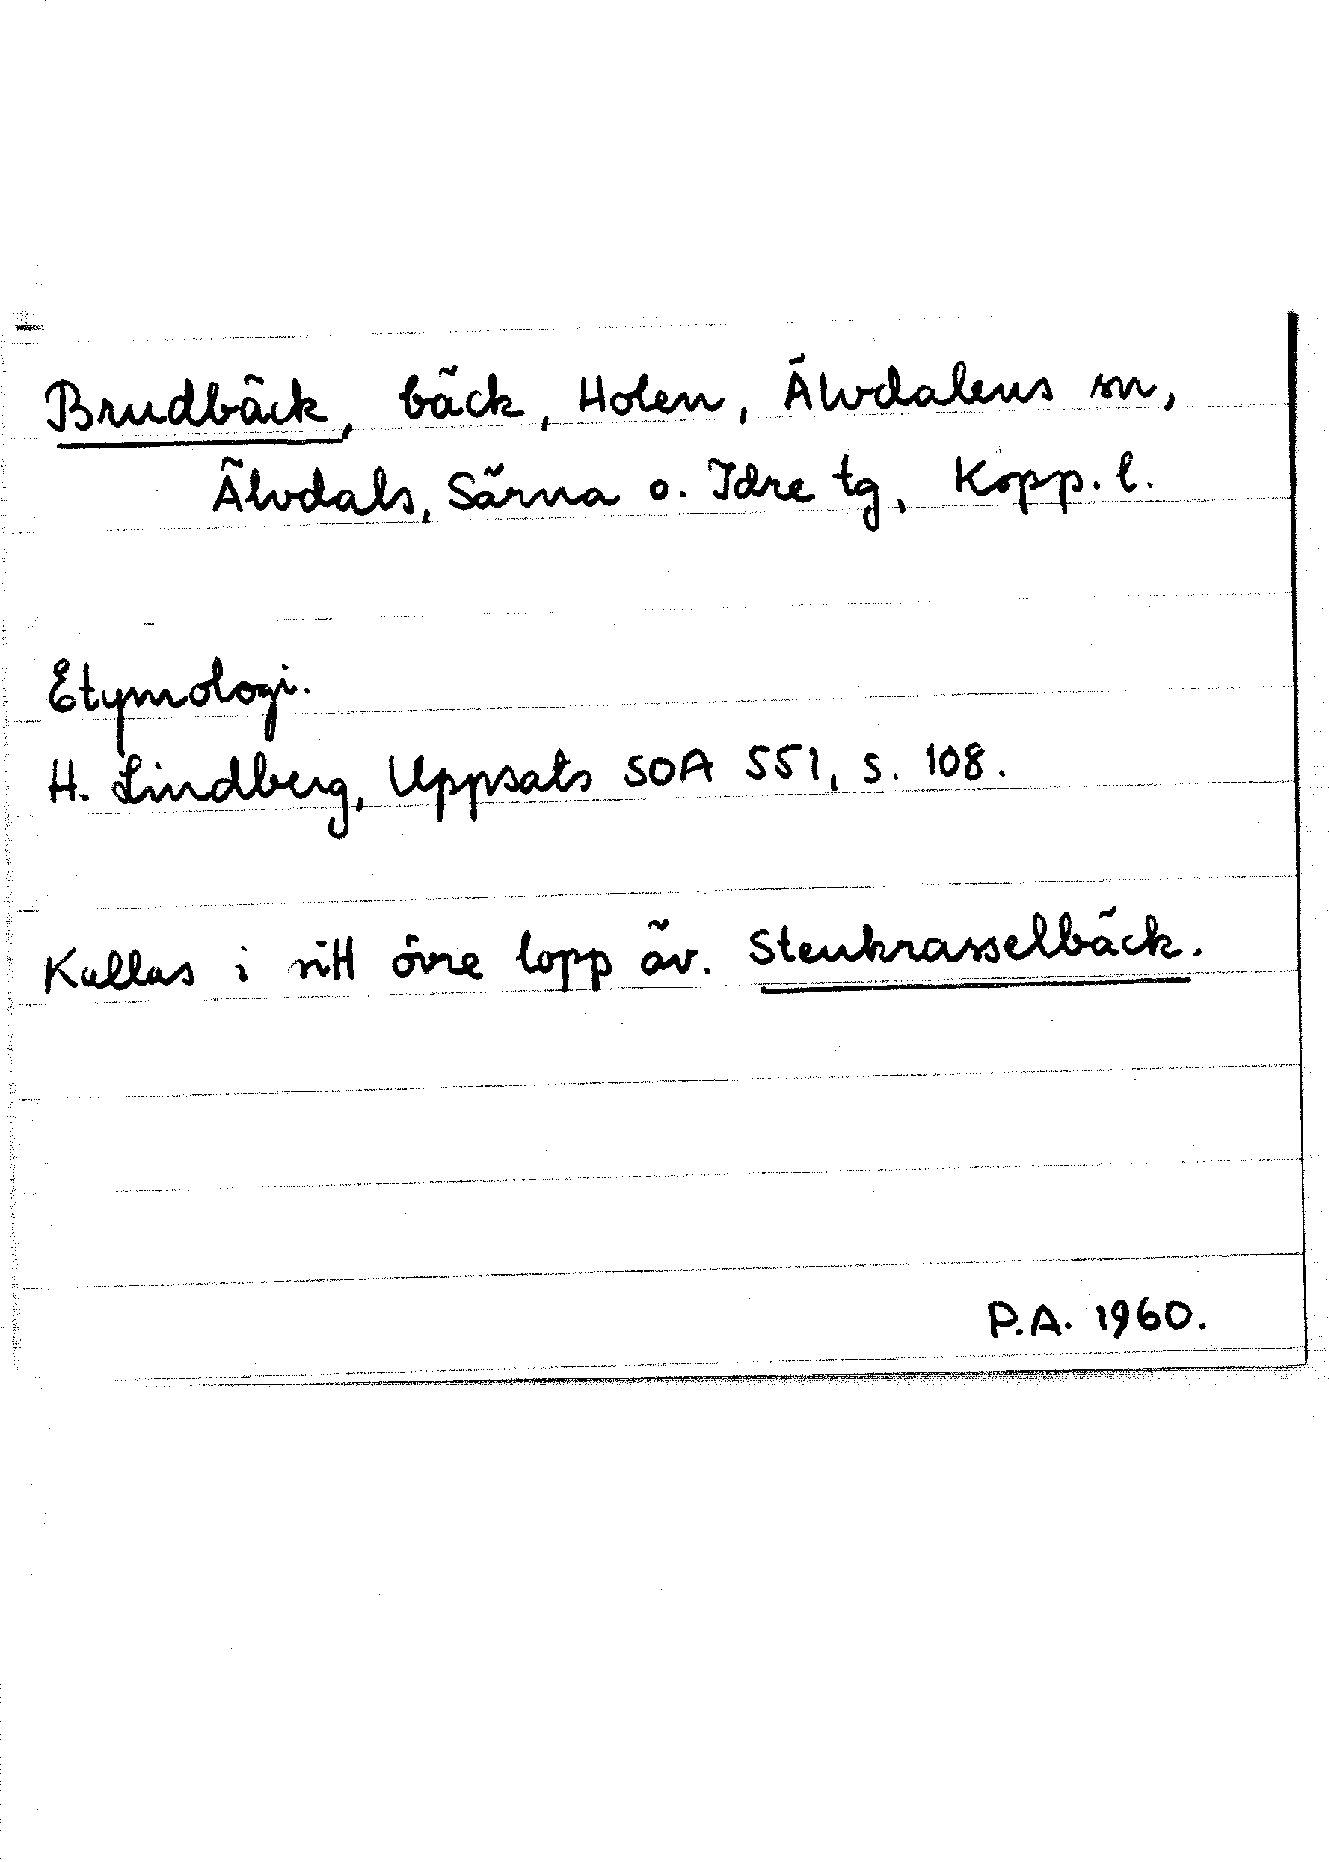 Brudbäck, bäck, Holen, Älvdalens sn,
Älvdals, Särna o. Idre tg, Kopp. l.
Etymologi.
H. Lindberg, Uppsats SOA 551, s. 108.
Kallas i sitt övre lopp äv. Stenkrasselbäck.
P.A. 1960.